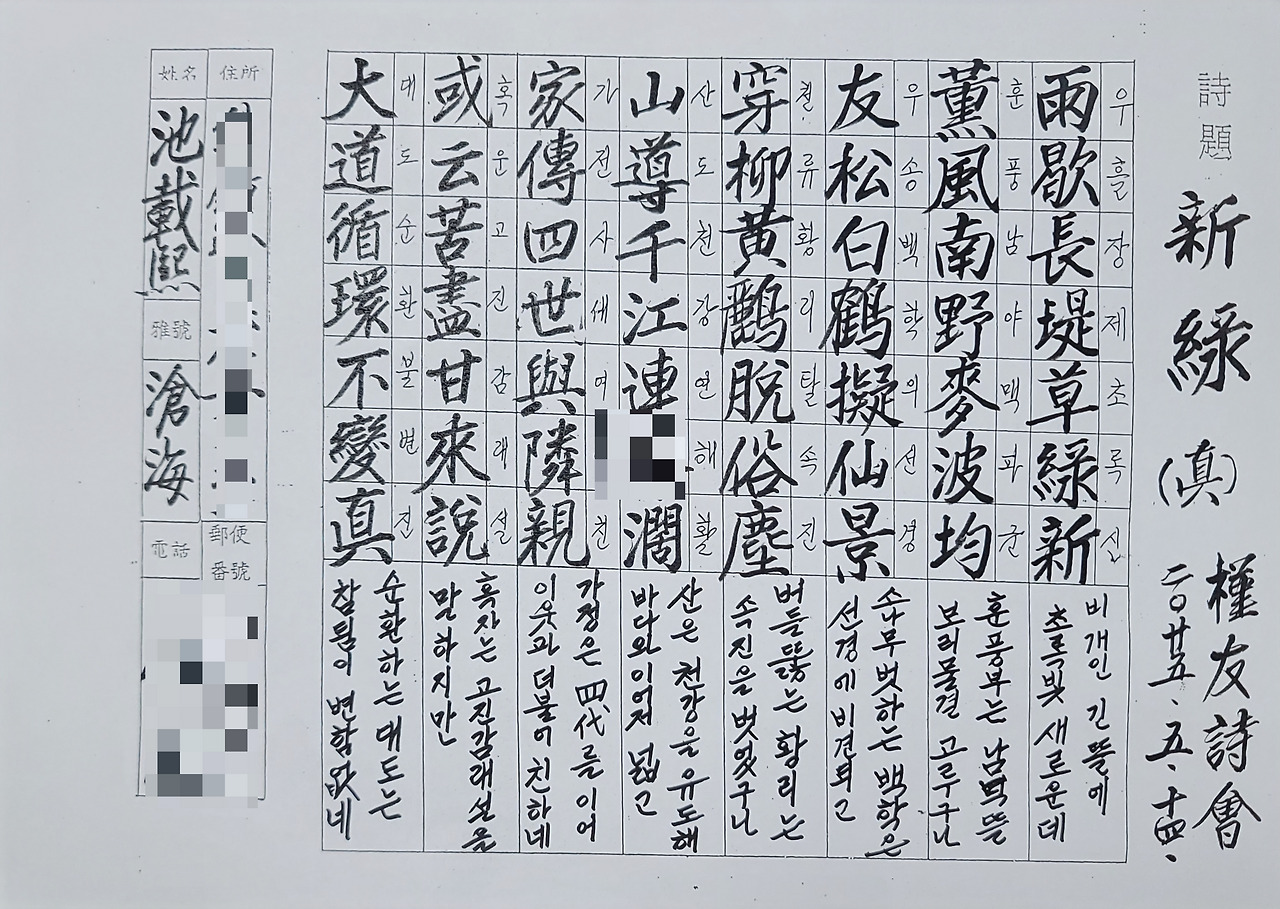 詩題 新綠 (眞)
槿友詩會
二〇廿五、五、十四、
雨우歇흘長장堤제草초綠록新신
비개인 긴 뜰에
초록빛 새로운데
薰훈風풍南남野야麥맥波파均균
훈풍부는 남녘뜰
보리물결 고르구나
友우松송白백鶴학擬의仙선景경
소나무 벗하는 백학은
선경에 비견되고
穿천柳류黃황鸝리脫탈俗속塵진
버들뚫는 황리는
속진을 벗었구나
山산導도千천江강連연해濶활
산은 천강을 유도해
바다와 이어져 넓고
家가傳전四사世세與여隣親친
가정은 四代를 이어
이웃과 더불어 친하네
或혹云운苦고盡진甘감來래說설
혹자는 고진감래설을
말하지만
大대道도循순環환不불變변眞진
순환하는 대도는
참됨이 변함없네
住所
郵便番號
姓名 池載熙
雅號 滄海
電話